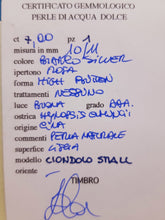 CERTIFICATO GEMMOLOGICO
PERLE DI ACQUA DOLCE
ct 7,00 pz 1
misura in mm 10/11
colore BIANCO SILVER
ipertono ROSA
forma HIGH BUTTON
trattamenti NESSUNO
luce BUONA grado AAA.
ostrea HYRIOPSIS CUMINGII
origine CINA
commenti PERLA NATURALE
superficie LISCIA
modello CIONDOLO STALL
oriente
TIMBRO